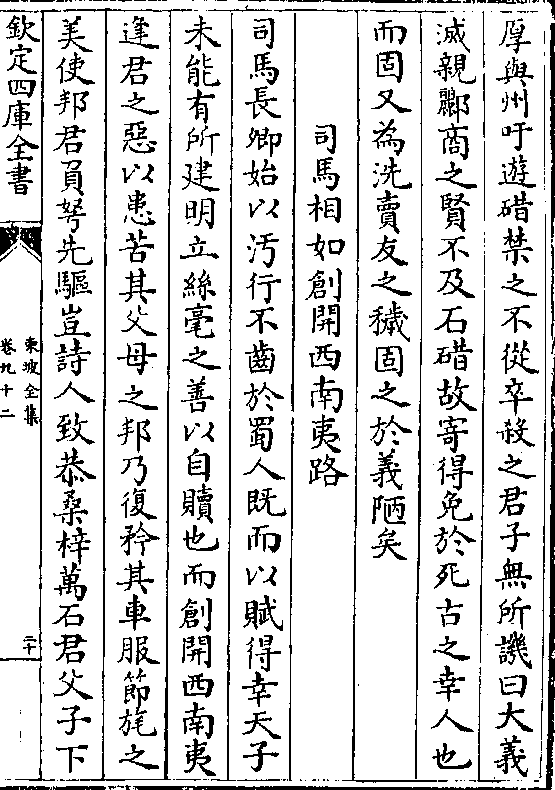 厚與州吁遊碏禁之不從卒殺之君子無所譏曰大義
滅親酈商之賢不及石碏故寄得免於死古之幸人也
而固又為洗賣友之穢固之於義陋矣
司馬相如創開西南夷路
司馬長卿始以汚行不齒於蜀人既而以賦得幸天子
未能有所建明立絲毫之善以自贖也而創開西南夷
逢君之惡以患苦其父母之邦乃復矜其車服節旄之
美使邦君負弩先驅豈詩人致恭桑梓萬石君父子下
欽定四庫全書
東坡全集
卷九十二
二十